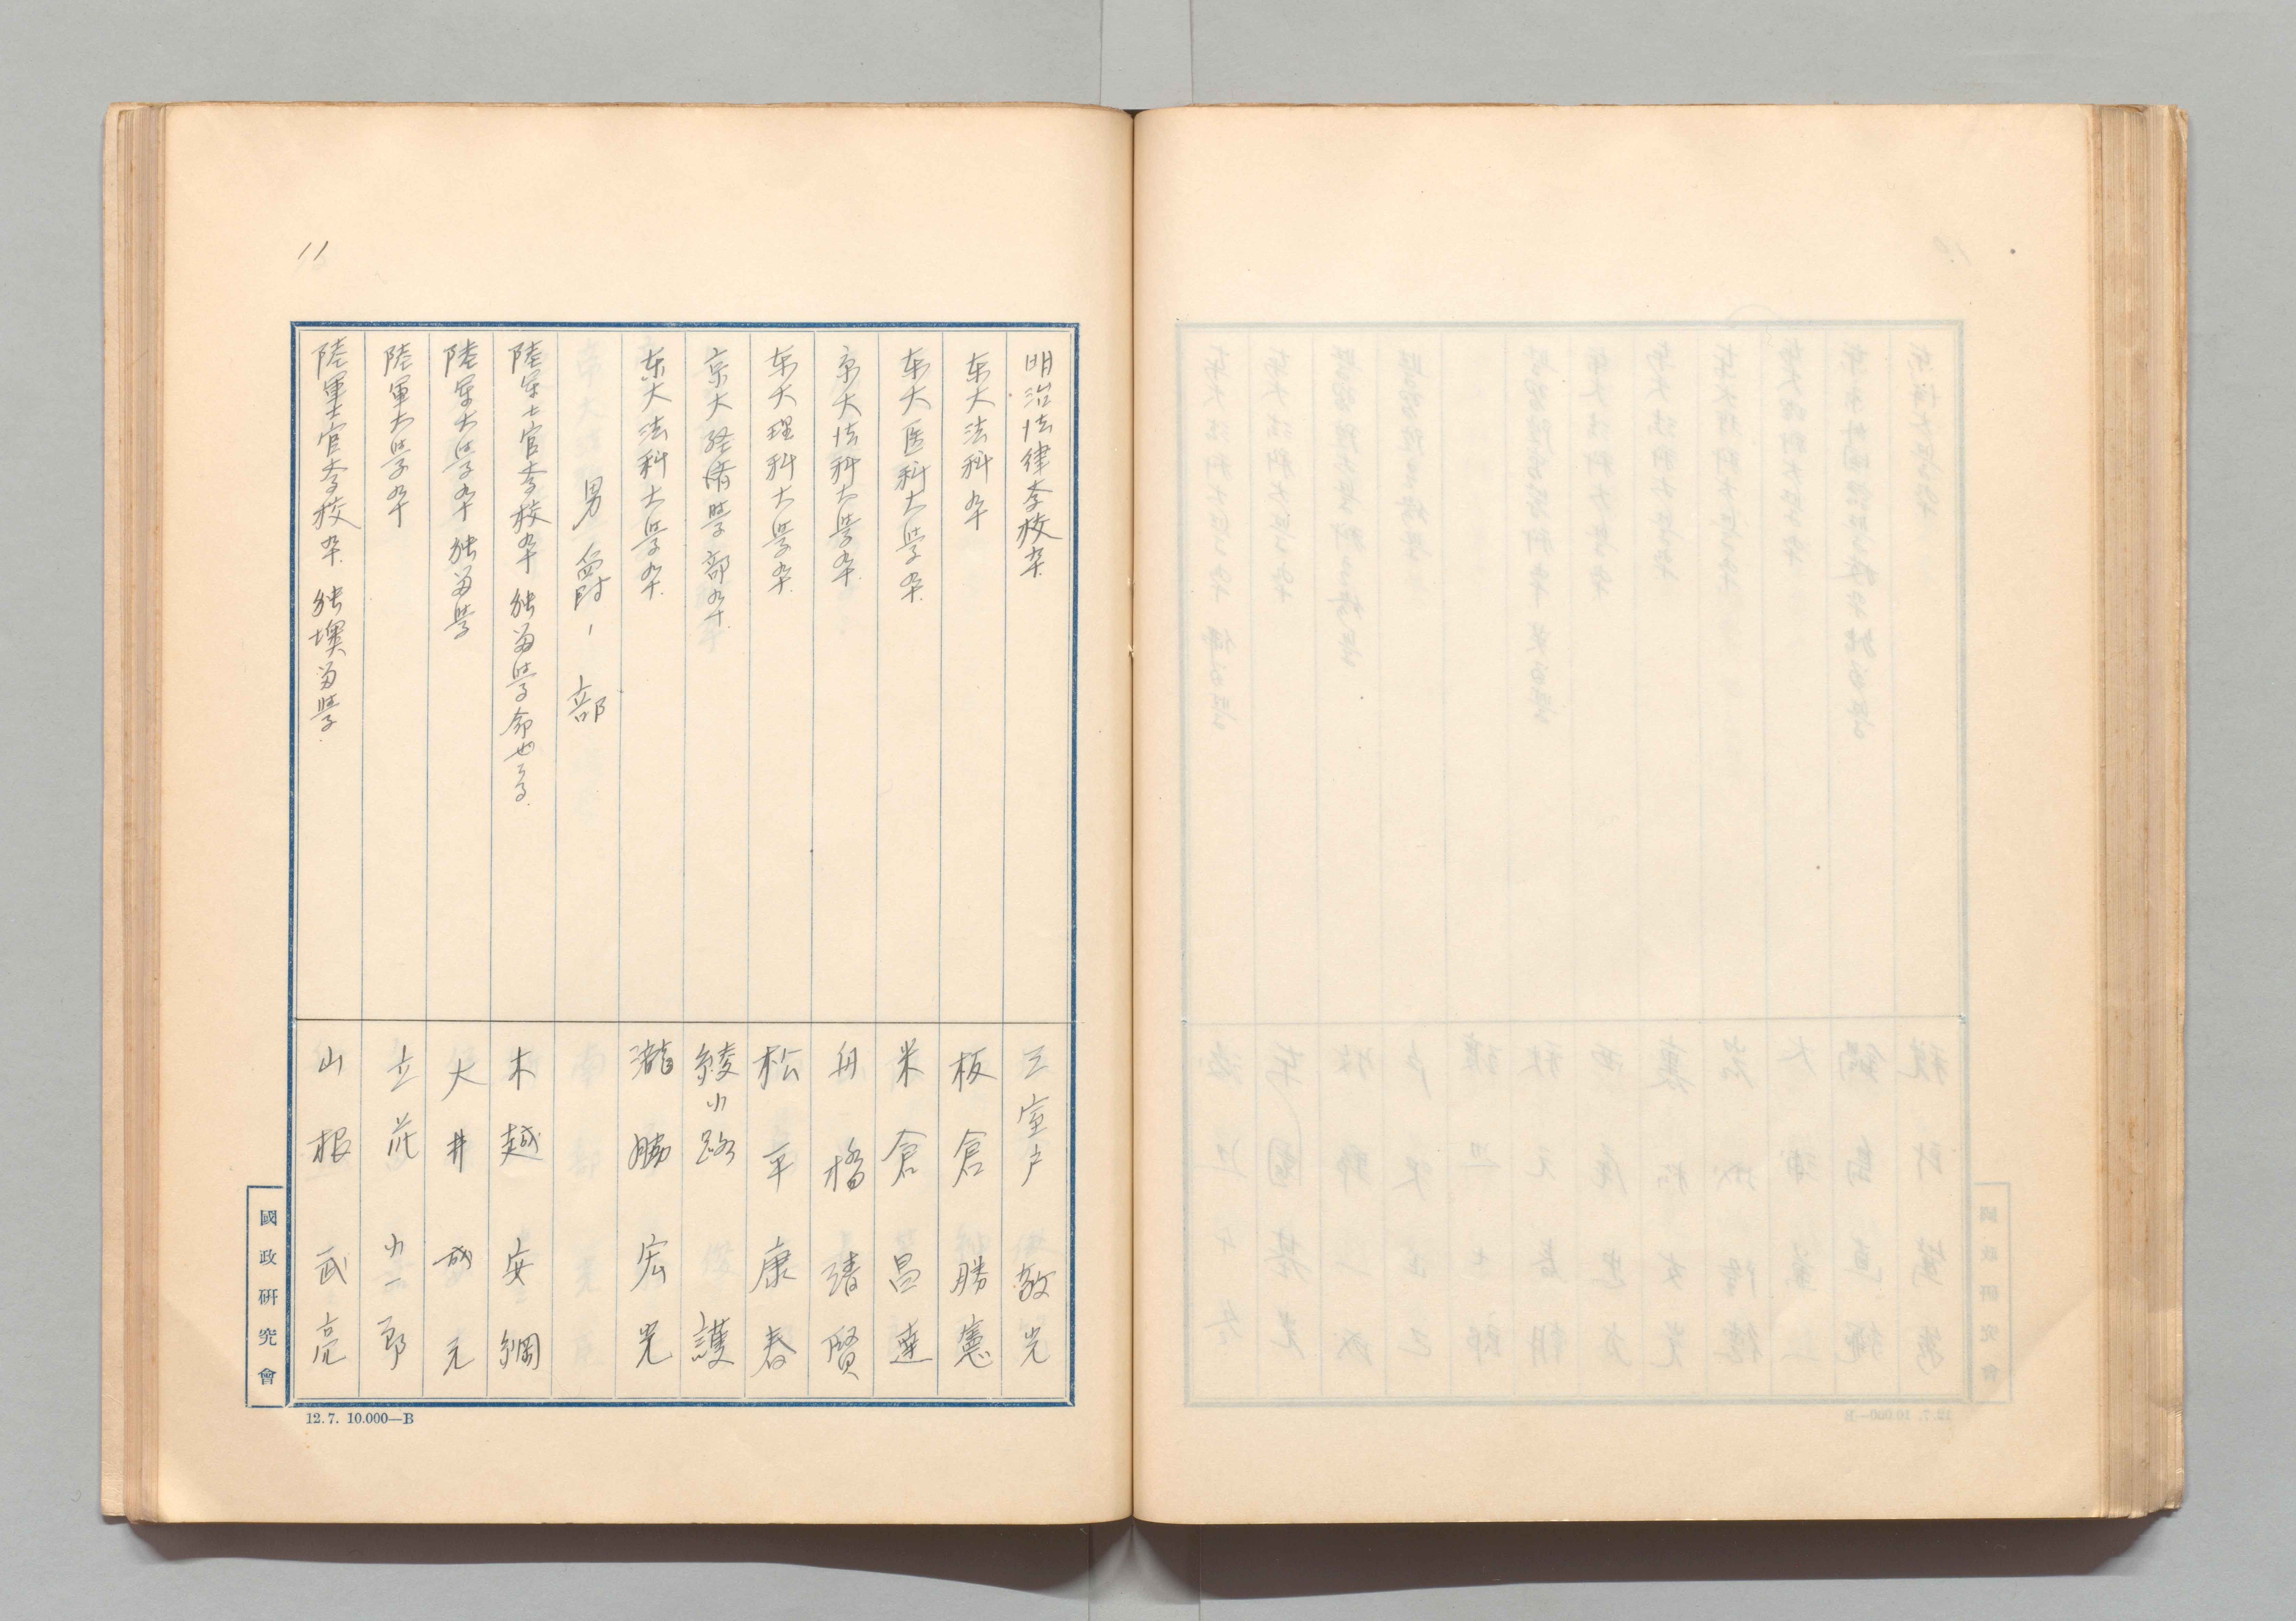 11
明治法律学校卒. 三室戸敬光
东大法科卒 板倉勝憲
东大医科大學卒. 米倉昌達
京大法科大學卒. 舟橋清賢
东大理科大學卒. 松平康春
京大経済學部卒. 綾小路護
东大法科大學卒. 瀧脇宏光
男爵ノ部
陸軍士官学校卒 独留學 木越安綱
陸軍大學卒 独留學 大井成元
陸軍大學卒 立花小一郎
陸軍士官学校卒. 独墺留學. 山根武亮
國政研究會
12.7. 10.000—B